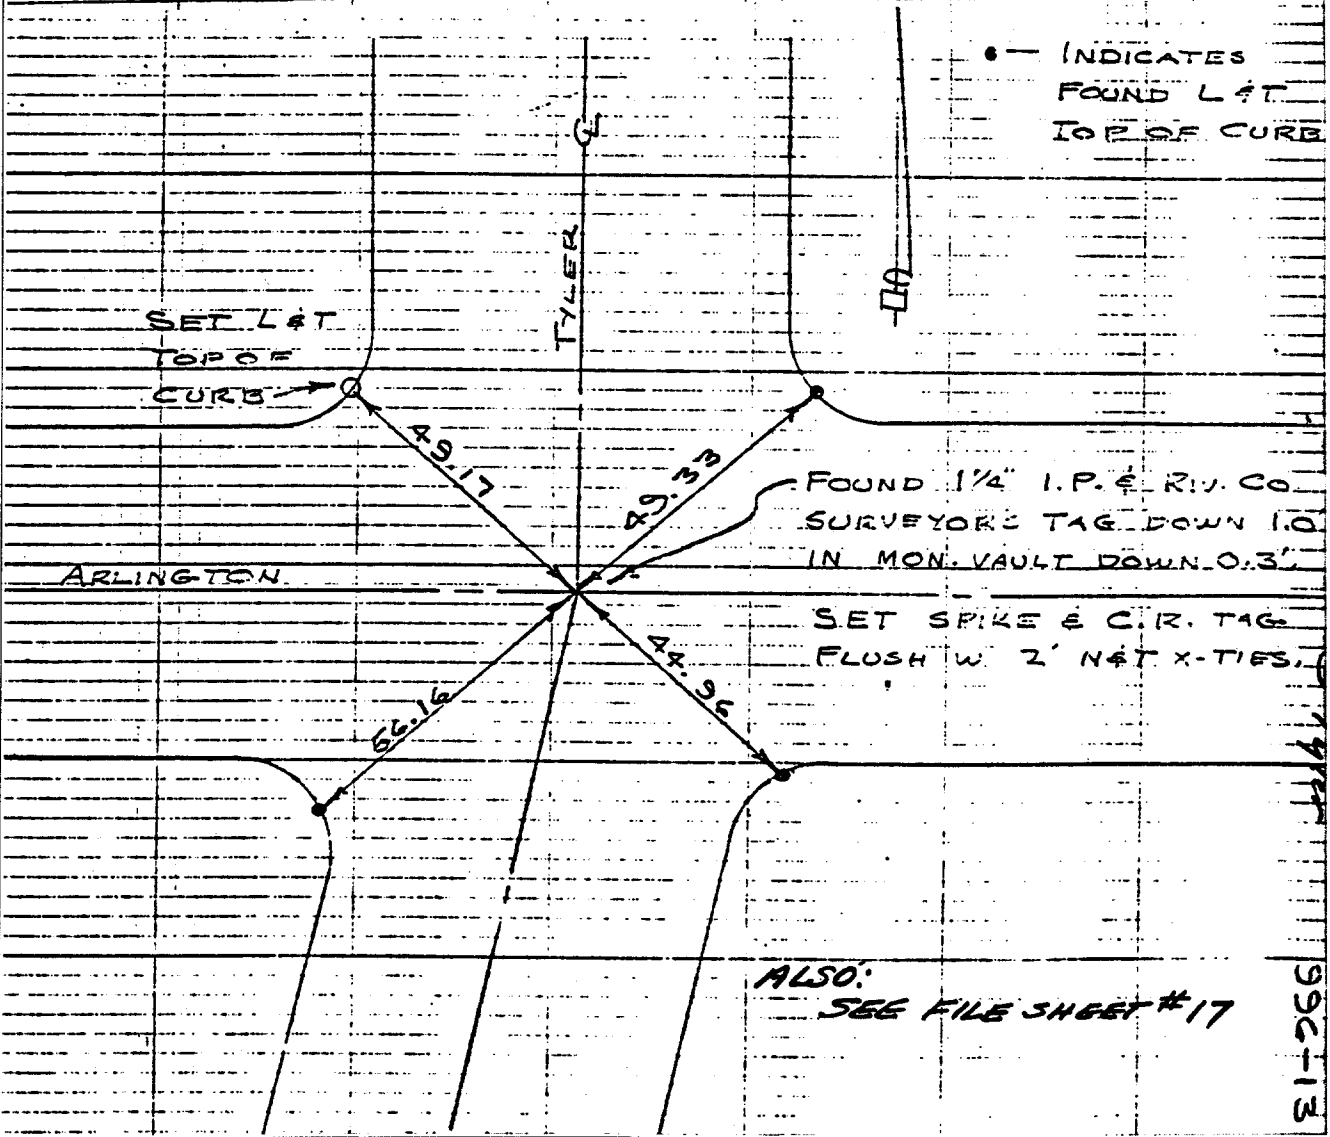 • — INDICATES
FOUND L & T
TOP OF CURB
℄
TYLER
SET L & T
TOP OF
CURB
49.17
49.33
FOUND 1¼" I.P. & RIV. CO
SURVEYORS TAG DOWN 1.0'
IN MON. VAULT DOWN 0.3'.
ARLINGTON
SET SPIKE & C.R. TAG
FLUSH W. 2' N&T X-TIES.
44.96
56.16
ALSO:
SEE FILE SHEET #17